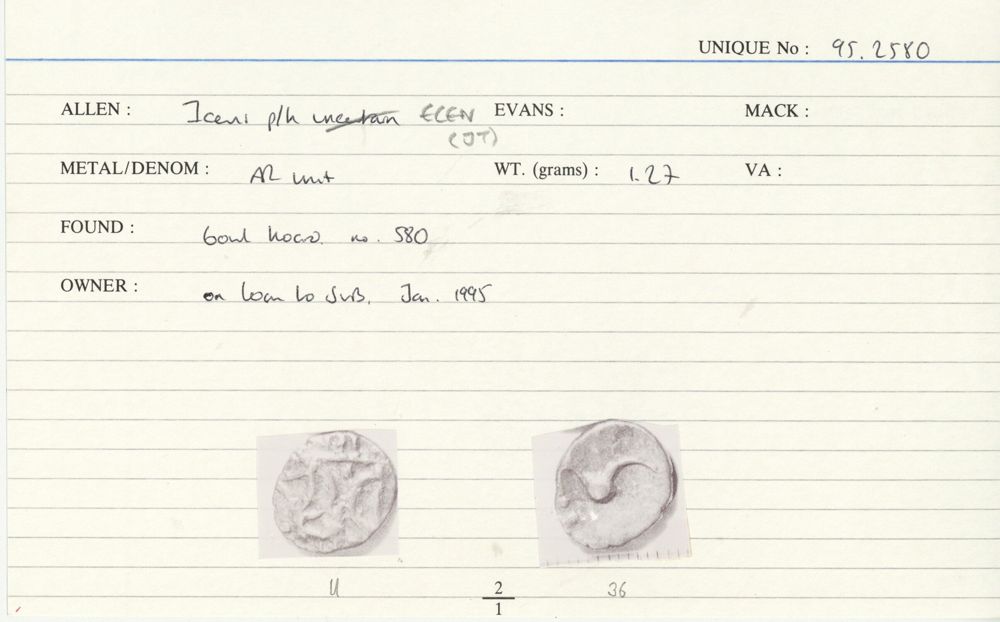 UNIQUE No : 95.2580
ALLEN : Iceni p/h uncertain ECEN EVANS : MACK :
(JT)
METAL/DENOM : AR unit WT. (grams) : 1.27 VA :
FOUND : bowl hoard. no. 580
OWNER : on loan to Jan. 1995
U 2 36
1